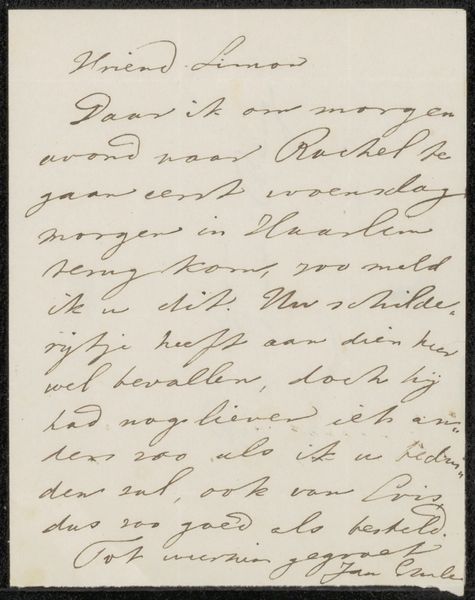 Vriend Simon
Daar ik om morgen
avond naar Rachel te
gaan eerst woensdag
morgen in Haarlem
terug kom, zoo meld
ik u dit. Uw schilde„
rijtje heeft aan dien heer
wel bevallen, doch hij
had nog liever iets an„
ders zoo als ik u bedui„
den zal, ook van
dus zoo goed als besteld.
Tot werkin gegroet
Jan